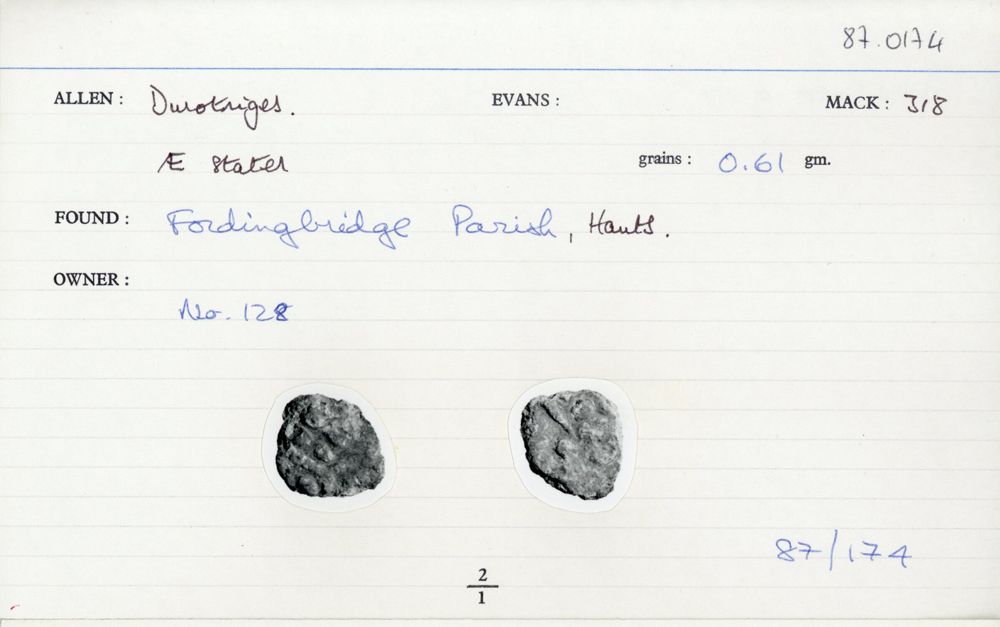 87.0174
ALLEN : Durotriges. EVANS : MACK : 318
Æ stater grains : 0.61 gm.
FOUND : Fordingbridge Parish, Hants.
OWNER :
No. 128
87/174
2
1